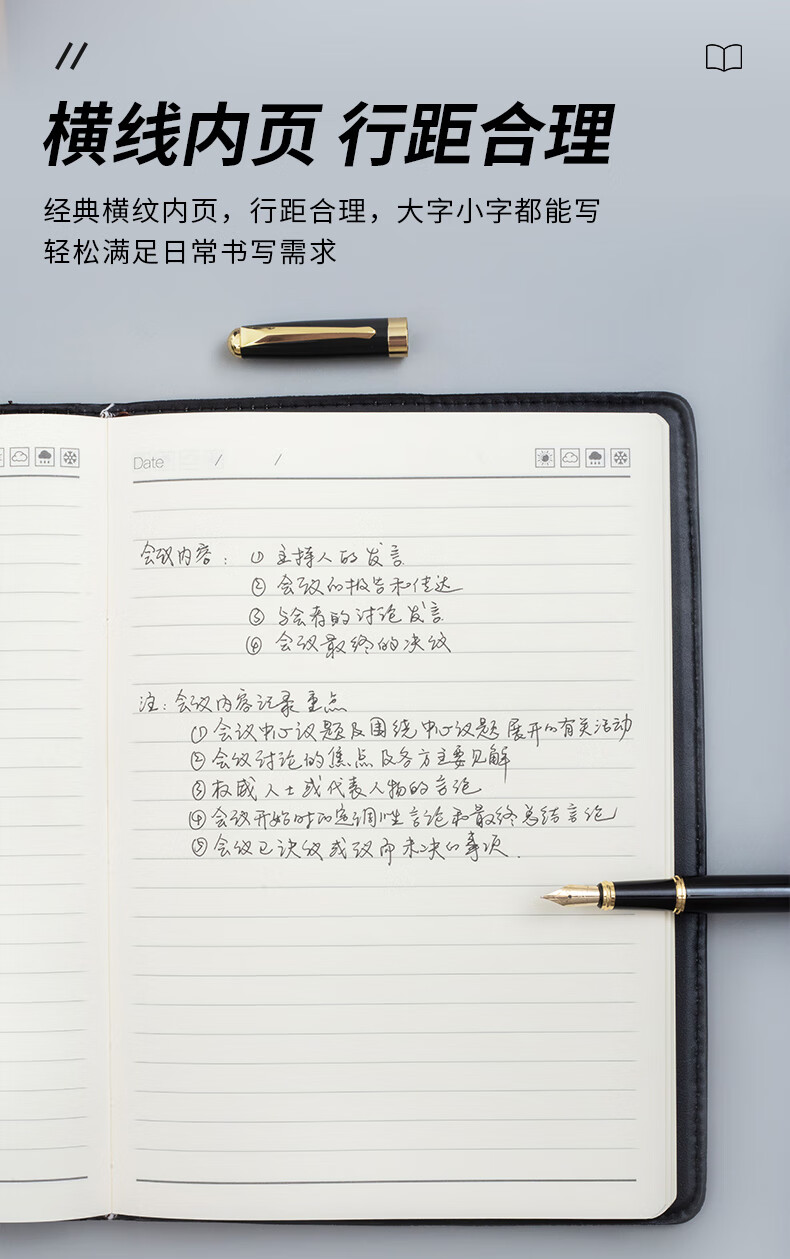 横线内页 行距合理
经典横纹内页，行距合理，大字小字都能写
轻松满足日常书写需求
Date / /
会议内容：① 主持人的发言
② 会议的报告和传达
③ 与会者的讨论发言
④ 会议最终的决议
注：会议内容记录重点
① 会议中心议题及围绕中心议题展开的有关活动
② 会议讨论的焦点及各方主要见解
③ 权威人士或代表人物的言论
④ 会议开始时的定调性言论和最终总结言论
⑤ 会议已决议或议而未决的事项.